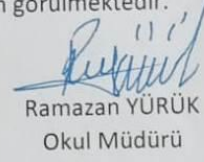 görülmektedir.
Ramazan YÜRÜK
Okul Müdürü